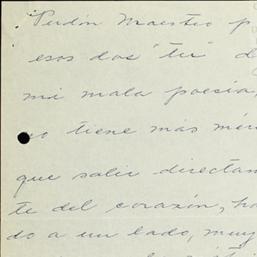 Perdón Maestro p
esos dos "tú" d
mi mala poesía,
no tiene más mér
que salir directam
te del corazón, ha
do a un lado, muy